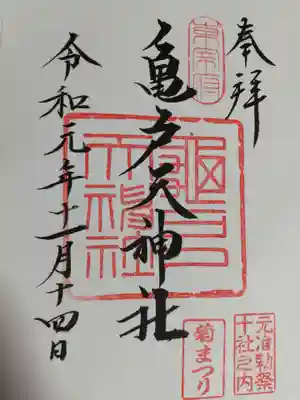 奉拝
東宰府
亀戸天神社
令和元年十一月十四日
元准勅祭
十社之内
菊まつり